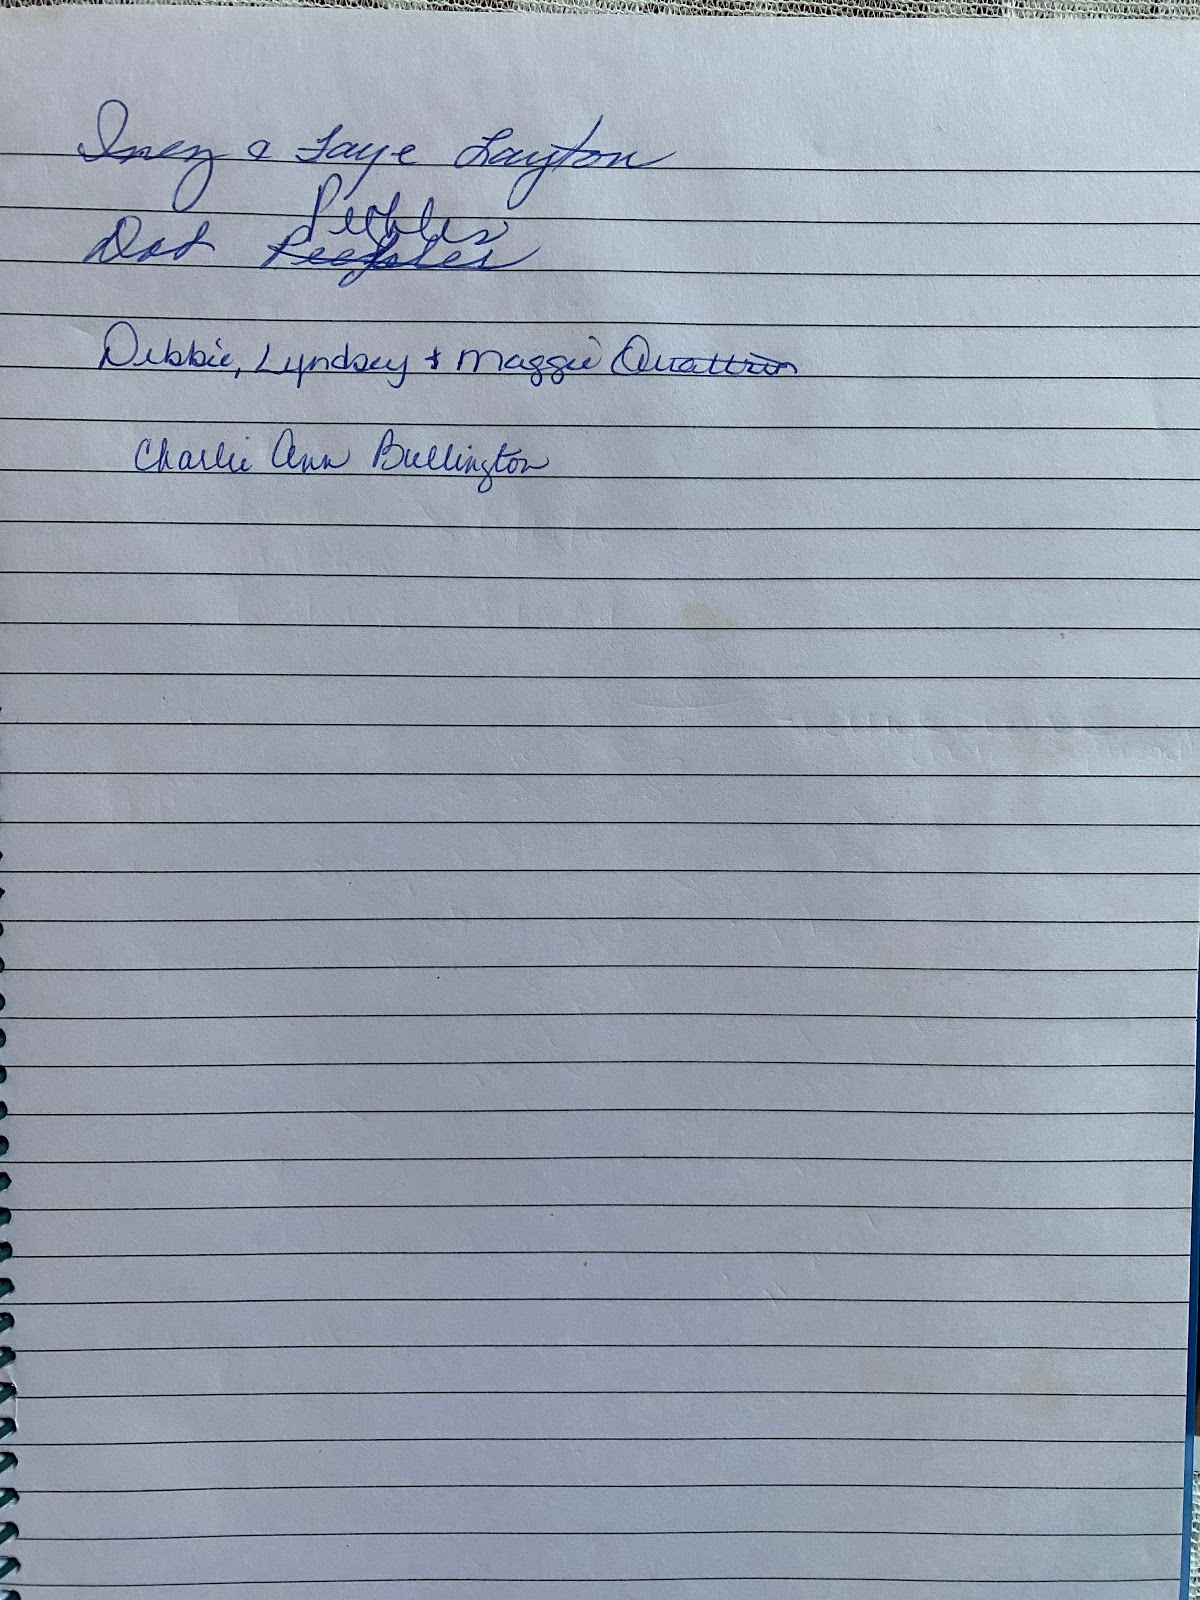 Inez & Faye Layton
Peebles
Dot Peeples
Debbie, Lyndsey & Maggie Quattrin
Charlie Ann Bullington